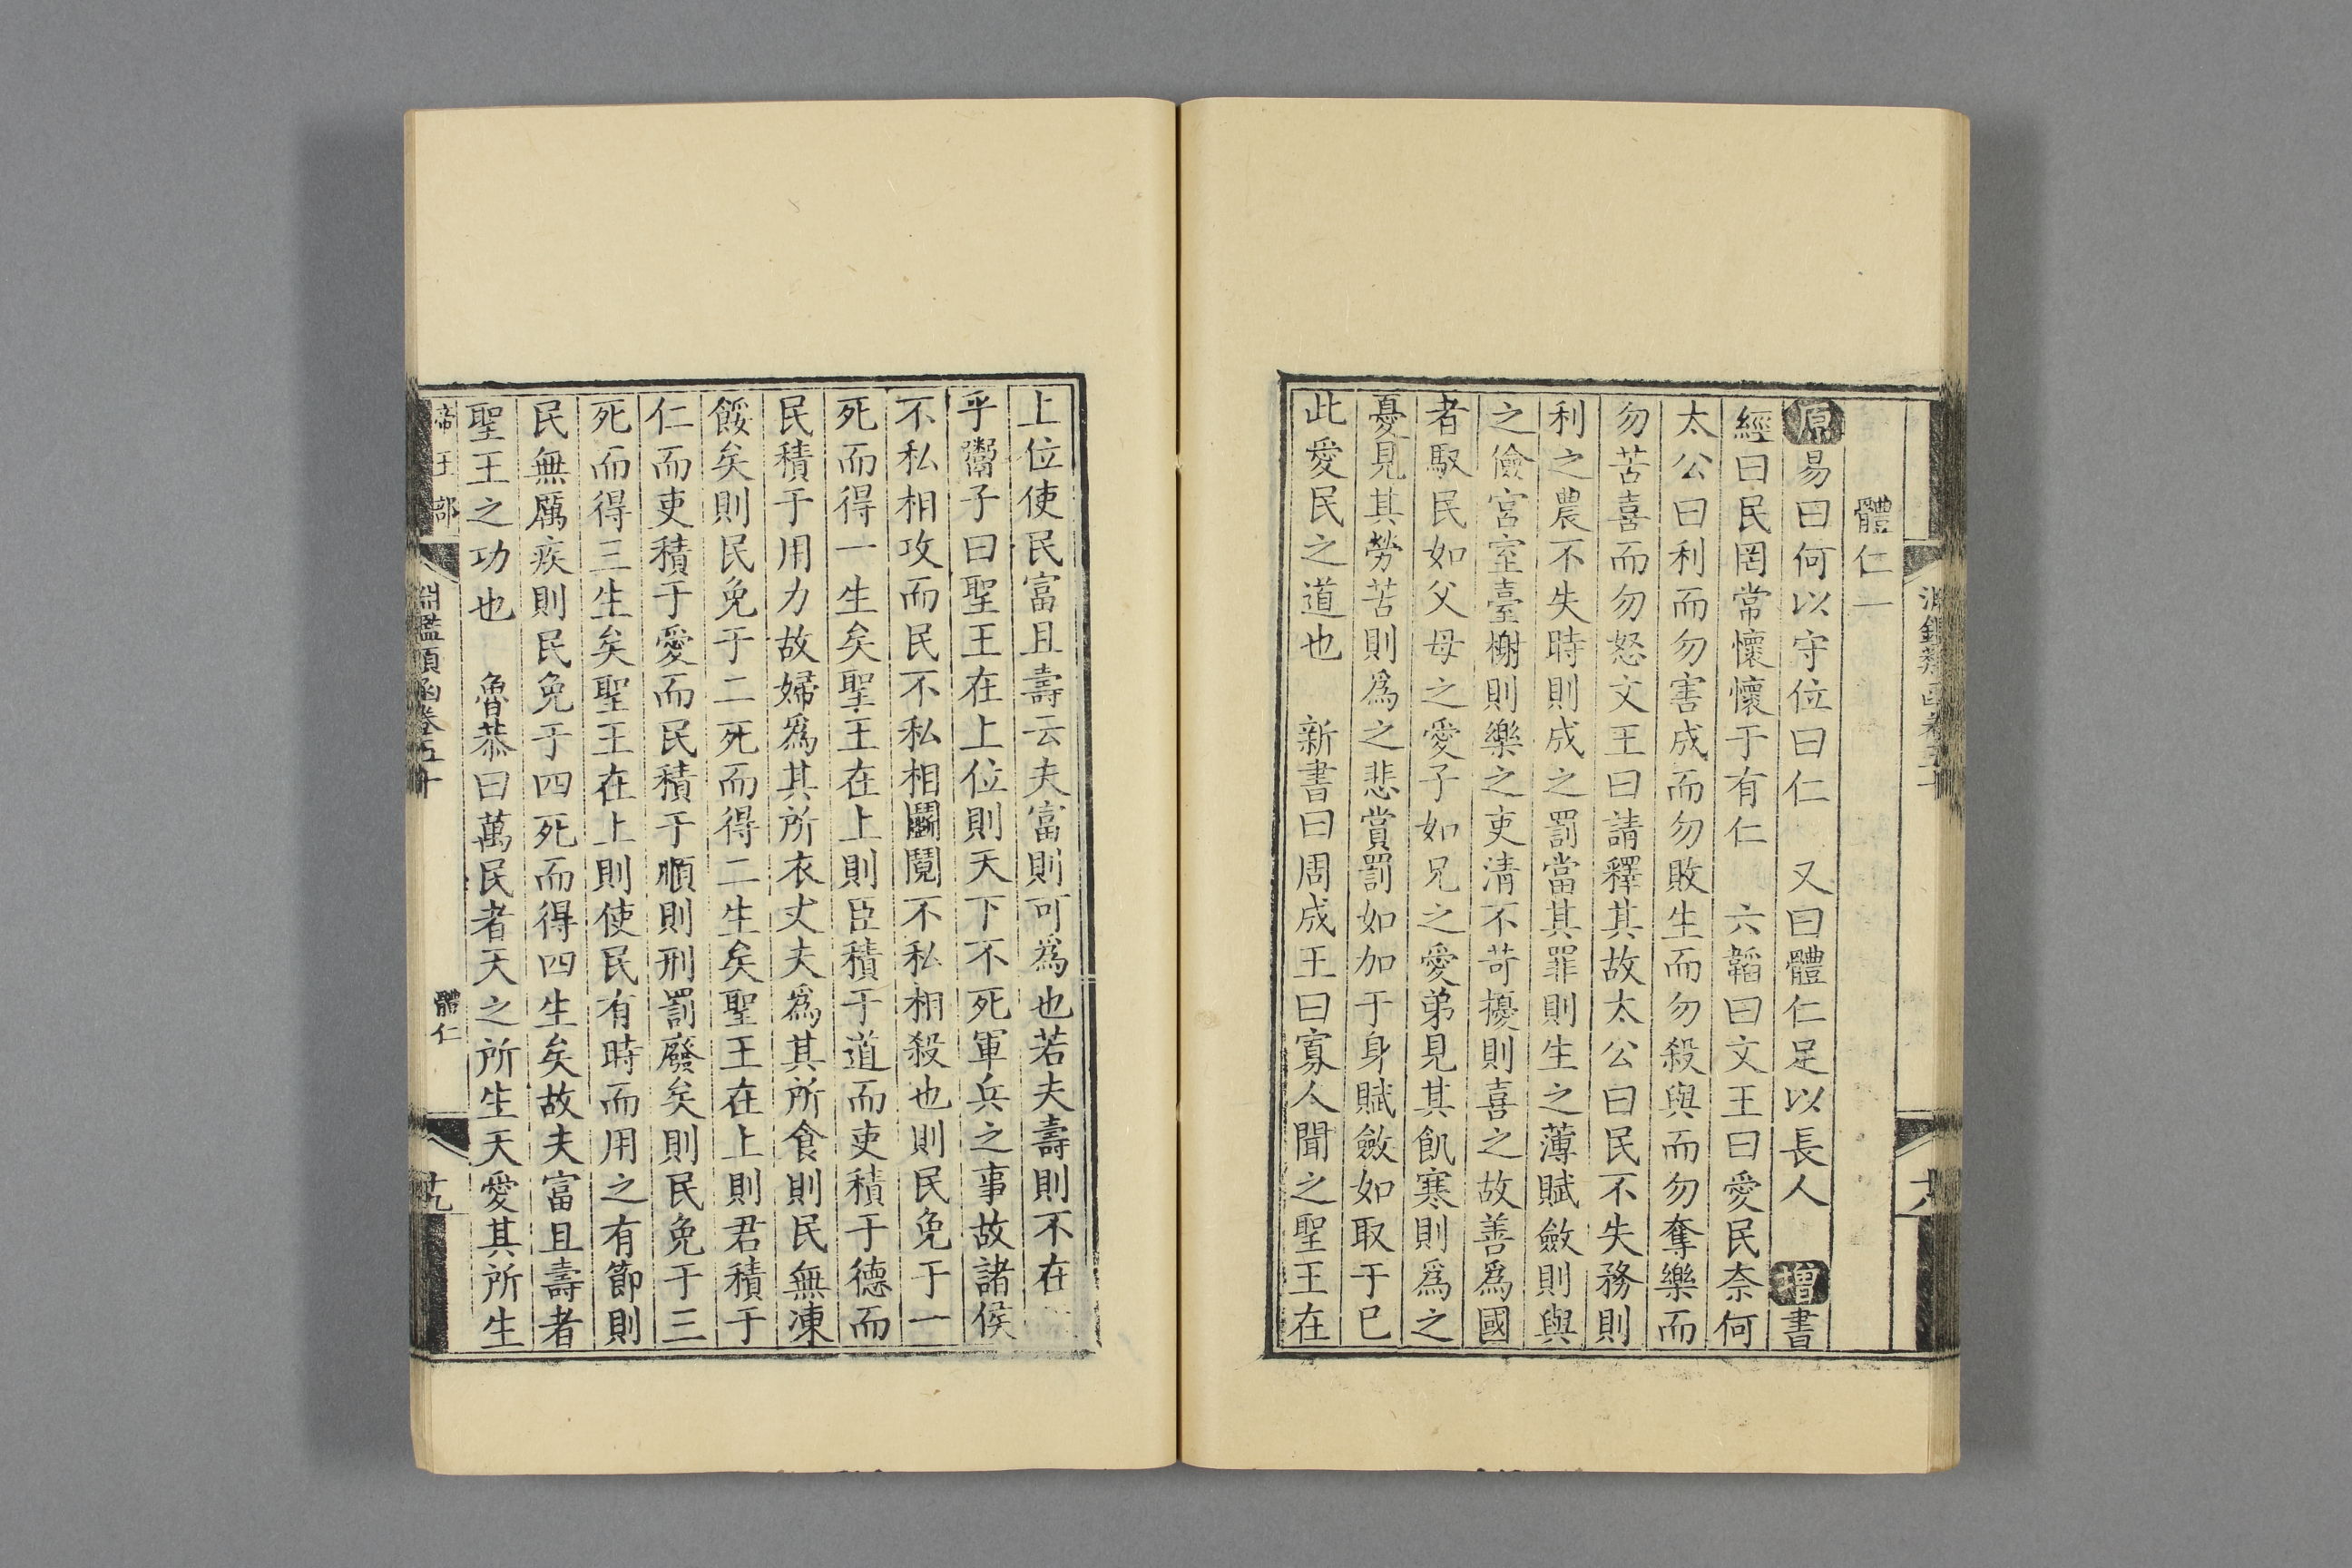 體仁一
原易曰何以守位曰仁　又曰體仁足以長人　增書
經曰民罔常懷懷于有仁　六韜曰文王曰愛民奈何
太公曰利而勿害成而勿敗生而勿殺與而勿奪樂而
勿苦喜而勿怒文王曰請釋其故太公曰民不失務則
利之農不失時則成之罰當其罪則生之薄賦斂則與
之儉宮室臺榭則樂之吏清不苛擾則喜之故善爲國
者馭民如父母之愛子如兄之愛弟見其飢寒則爲之
憂見其勞苦則爲之悲賞罰如加于身賦斂如取于已
此愛民之道也　新書曰周成王曰寡人聞之聖王在
上位使民富且壽云夫富則可爲也若夫壽則不在
乎鬻子曰聖王在上位則天下不死軍兵之事故諸侯
不私相攻而民不私相鬭鬩不私相殺也則民免于一
死而得一生矣聖王在上則臣積于道而吏積于德而
民積于用力故婦爲其所衣丈夫爲其所食則民無凍
餒矣則民免于二死而得二生矣聖王在上則君積于
仁而吏積于愛而民積于順則刑罰廢矣則民免于三
死而得三生矣聖王在上則使民有時而用之有節則
民無厲疾則民免于四死而得四生矣故夫富且壽者
聖王之功也　魯恭曰萬民者天之所生天愛其所生
帝王部
淵鑑類函卷五十
體仁